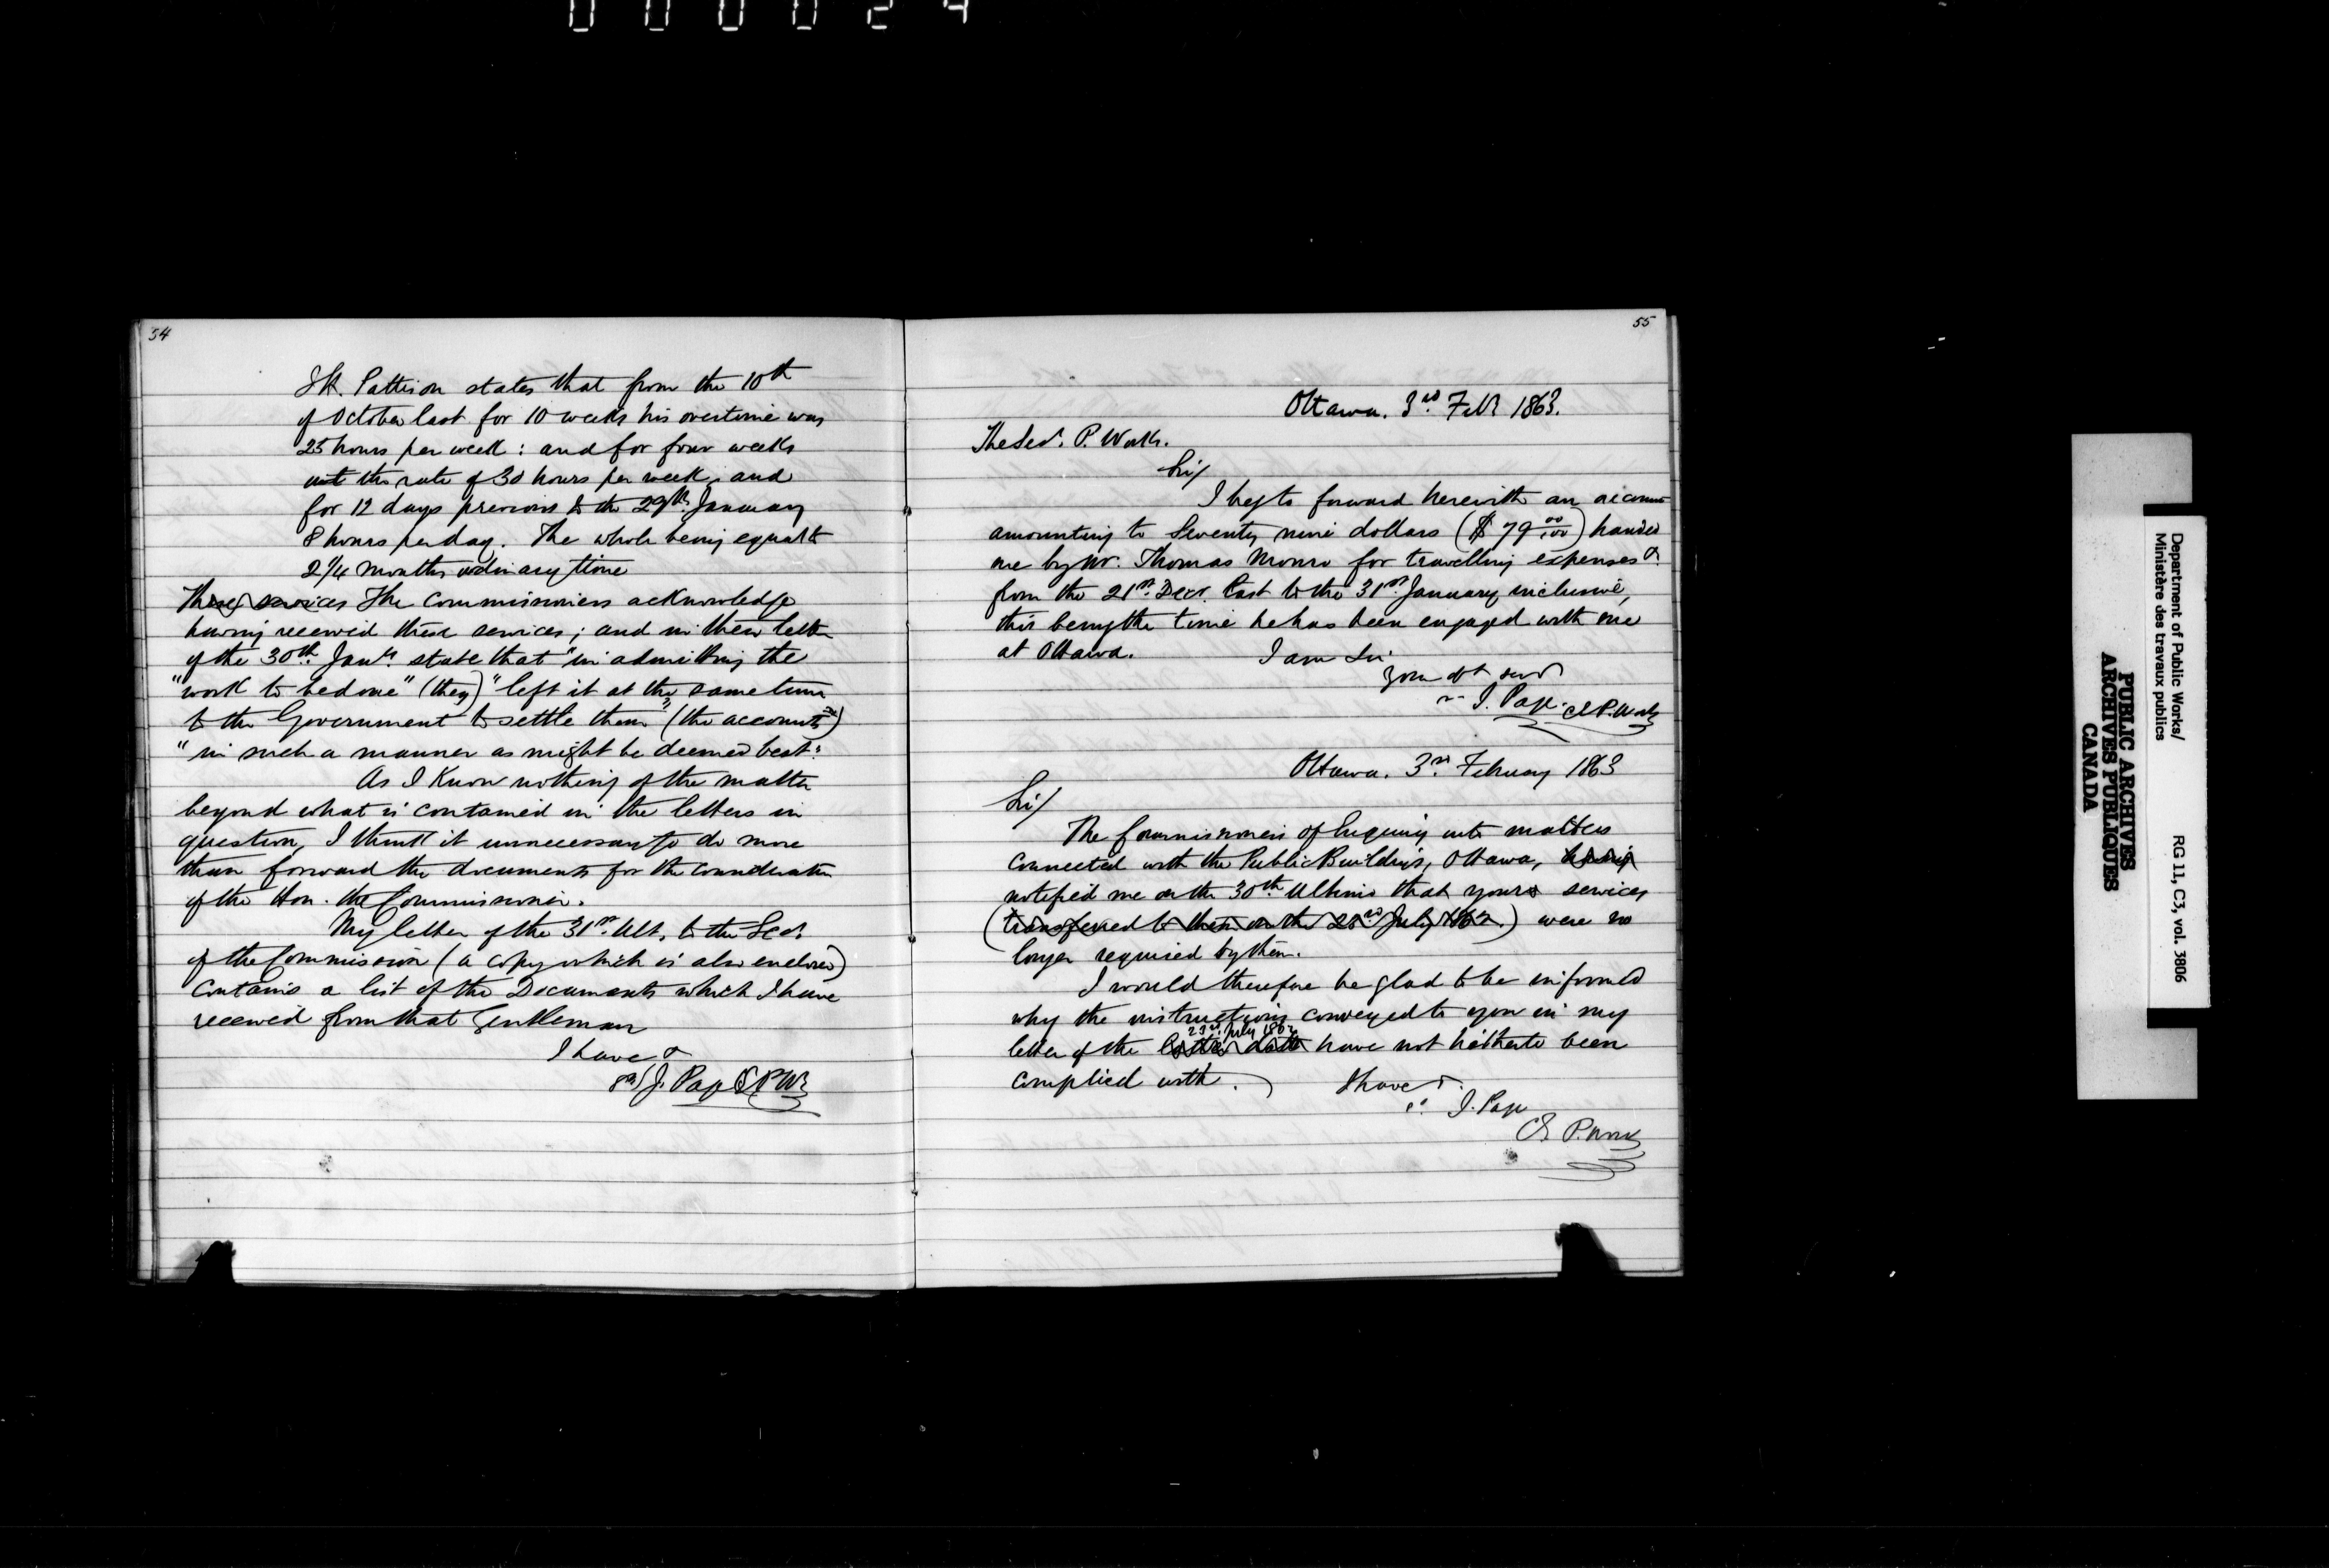 000024
54
J.H. Pattison states that from the 10th
of October last for 10 weeks his overtime was
25 hours per week : and for four weeks
at the rate of 30 hours per week, and
for 12 days previous to the 29th January
8 hours per day. The whole being equal to
2 1/4 months ordinary time
These services The Commissioners acknowledge
having received these services ; and in their letter
of the 30th Jany. state that "in admitting the
"work to be done" (they) "left it at the same time
to the Government to settle them" (the accounts)
"in such a manner as might be deemed best."
As I Know nothing of the matter
beyond what is contained in the letters in
question, I think it unnecessary to do more
than forward the documents for the consideration
of the Hon. the Commissioner.
My letter of the 31st. Ult. to the Secy.
of the Commission (a copy which is also enclosed)
Contains a list of the Documents which I have
received from that Gentleman
I have &
J. Page C.P.W.
55
Ottawa. 3rd. Feb 1863.
The Secy. P. Works.
Sir/
I beg to forward herewith an account
amounting to Seventy nine dollars ($79 00/100) handed
me by Mr. Thomas Monro for travelling expenses &
from the 21st. Decr. last to the 31st. January inclusive,
this being the time he has been engaged with me
at Ottawa. I am Sir
Your obt servt
J. Page. C.E. P. Works
Ottawa. 3rd. February 1863
Sir/
The Commissioners of Enquiry into matters
connected with the Public Buildings, Ottawa, having
notified me on the 30th Ultimo that your services
(transferred to them on the 23rd July 1862.) were no
longer required by them.
I would therefore be glad to be informed
why the instructions conveyed to you in my
23rd. July 1862
letter of the latter date have not hitherto been
complied with. I have &.
J. Page
C.E. P. Works
Department of Public Works/
Ministère des travaux publics
RG 11, C3, vol. 3806
PUBLIC ARCHIVES
ARCHIVES PUBLIQUES
CANADA